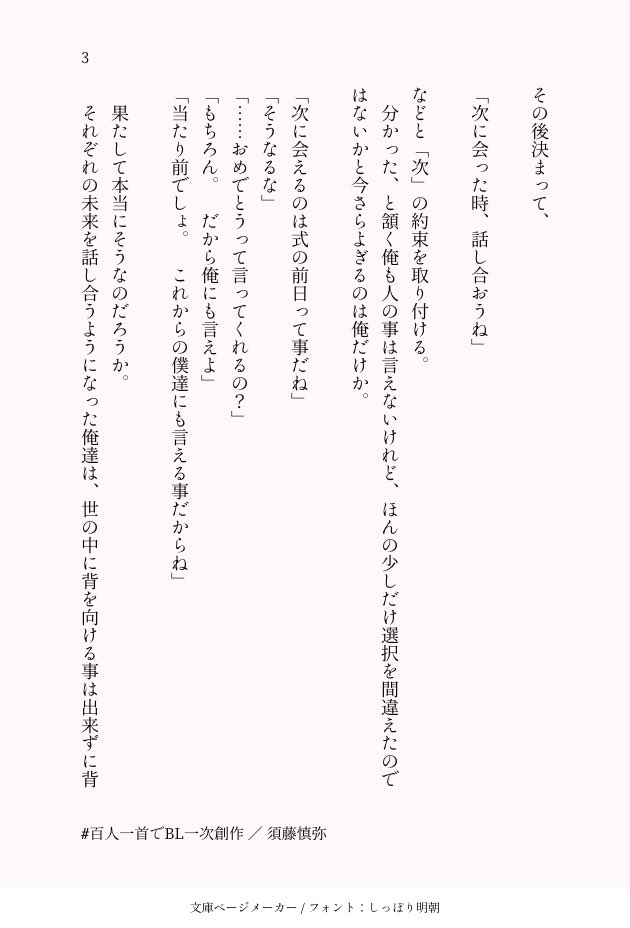 3
その後決まって、
「次に会った時、話し合おうね」
などと「次」の約束を取り付ける。
　分かった、と頷く俺も人の事は言えないけれど、ほんの少しだけ選択を間違えたので
はないかと今さらよぎるのは俺だけか。
「次に会えるのは式の前日って事だね」
「そうなるな」
「……おめでとうって言ってくれるの？」
「もちろん。　だから俺にも言えよ」
「当たり前でしょ。　これからの僕達にも言える事だからね」
　果たして本当にそうなのだろうか。
　それぞれの未来を話し合うようになった俺達は、世の中に背を向ける事は出来ずに背
#百人一首でBL一次創作 ／ 須藤慎弥
文庫ページメーカー / フォント：しっぽり明朝